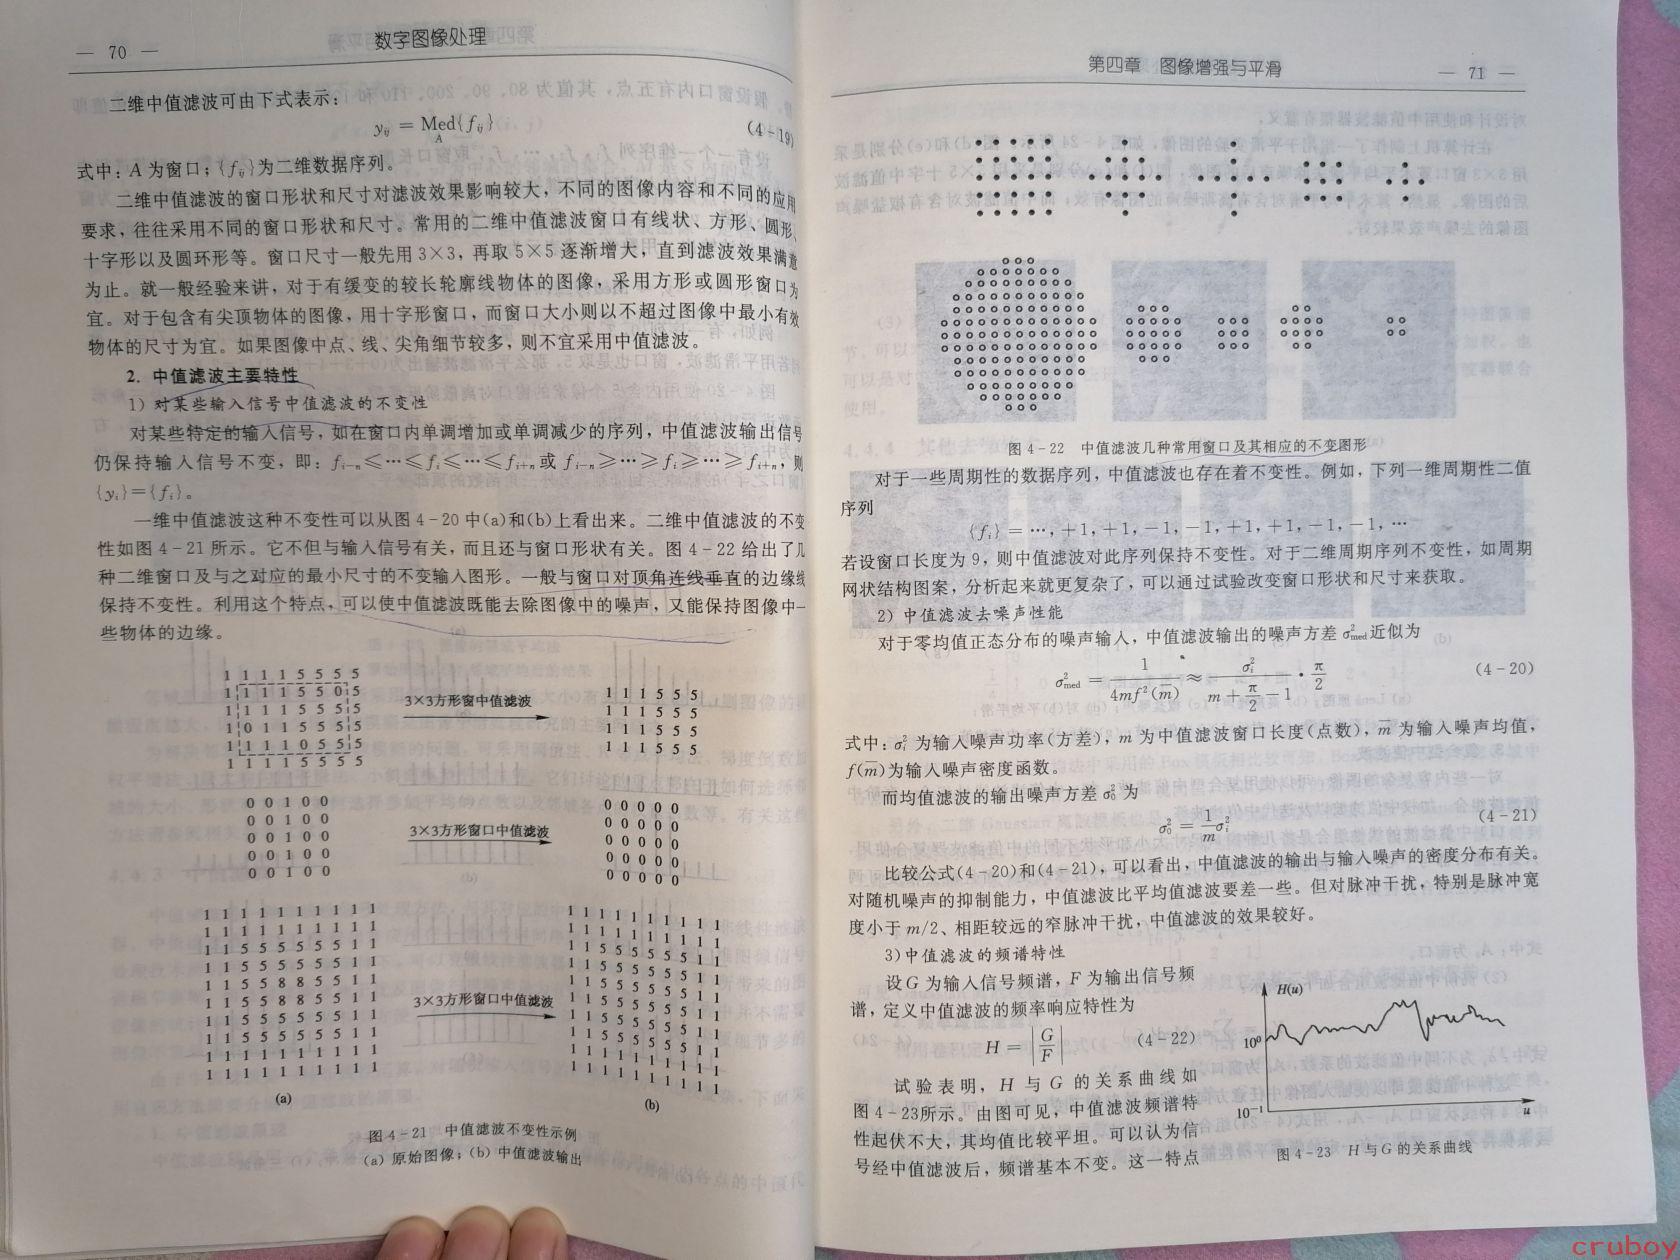 — 70 —
数字图像处理
二维中值滤波可由下式表示：
yᵢⱼ = Med{fᵢⱼ}
A
(4-19)
式中：A 为窗口；{fᵢⱼ}为二维数据序列。
二维中值滤波的窗口形状和尺寸对滤波效果影响较大，不同的图像内容和不同的应用
要求，往往采用不同的窗口形状和尺寸。常用的二维中值滤波窗口有线状、方形、圆形、
十字形以及圆环形等。窗口尺寸一般先用 3×3，再取 5×5 逐渐增大，直到滤波效果满意
为止。就一般经验来讲，对于有缓变的较长轮廓线物体的图像，采用方形或圆形窗口为
宜。对于包含有尖顶物体的图像，用十字形窗口，而窗口大小则以不超过图像中最小有效
物体的尺寸为宜。如果图像中点、线、尖角细节较多，则不宜采用中值滤波。
2. 中值滤波主要特性
1) 对某些输入信号中值滤波的不变性
对某些特定的输入信号，如在窗口内单调增加或单调减少的序列，中值滤波输出信号
仍保持输入信号不变，即：fᵢ₋ₙ≤…≤fᵢ≤…≤fᵢ₊ₙ或 fᵢ₋ₙ≥…≥fᵢ≥…≥fᵢ₊ₙ，则
{yᵢ}={fᵢ}。
一维中值滤波这种不变性可以从图 4-20 中(a)和(b)上看出来。二维中值滤波的不变
性如图 4-21 所示。它不但与输入信号有关，而且还与窗口形状有关。图 4-22 给出了几
种二维窗口及与之对应的最小尺寸的不变输入图形。一般与窗口对顶角连线垂直的边缘线
保持不变性。利用这个特点，可以使中值滤波既能去除图像中的噪声，又能保持图像中一
些物体的边缘。
1 1 1 1 5 5 5 5
1 1 1 1 5 5 0 5
1 1 1 1 5 5 5 5
1 0 1 1 5 5 5 5
1 1 1 1 0 5 5 5
1 1 1 1 5 5 5 5
3×3方形窗中值滤波
1 1 1 5 5 5
1 1 1 5 5 5
1 1 1 5 5 5
1 1 1 5 5 5
0 0 1 0 0
0 0 1 0 0
0 0 1 0 0
0 0 1 0 0
0 0 1 0 0
3×3方形窗口中值滤波
0 0 0 0 0
0 0 0 0 0
0 0 0 0 0
0 0 0 0 0
0 0 0 0 0
1 1 1 1 1 1 1 1 1 1
1 1 1 1 1 1 1 1 1 1
1 1 5 5 5 5 5 5 1 1
1 1 5 5 5 5 5 5 1 1
1 1 5 5 8 8 5 5 1 1
1 1 5 5 8 8 5 5 1 1
1 1 5 5 5 5 5 5 1 1
1 1 5 5 5 5 5 5 1 1
1 1 1 1 1 1 1 1 1 1
1 1 1 1 1 1 1 1 1 1
3×3方形窗口中值滤波
1 1 1 1 1 1 1 1 1 1
1 1 1 1 1 1 1 1 1 1
1 1 1 5 5 5 5 1 1 1
1 1 5 5 5 5 5 5 1 1
1 1 5 5 5 5 5 5 1 1
1 1 5 5 5 5 5 5 1 1
1 1 5 5 5 5 5 5 1 1
1 1 1 5 5 5 5 1 1 1
1 1 1 1 1 1 1 1 1 1
1 1 1 1 1 1 1 1 1 1
(a)
(b)
图 4-21 中值滤波不变性示例
(a) 原始图像；(b) 中值滤波输出
第四章 图像增强与平滑
— 71 —
图 4-22 中值滤波几种常用窗口及其相应的不变图形
对于一些周期性的数据序列，中值滤波也存在着不变性。例如，下列一维周期性二值
序列
{fᵢ} = …，+1，+1，-1，-1，+1，+1，-1，-1，…
若设窗口长度为 9，则中值滤波对此序列保持不变性。对于二维周期序列不变性，如周期
网状结构图案，分析起来就更复杂了，可以通过试验改变窗口形状和尺寸来获取。
2) 中值滤波去噪声性能
对于零均值正态分布的噪声输入，中值滤波输出的噪声方差 σ²med 近似为
σ²med = 1/(4mf²(m̄)) ≈ σᵢ²/(m + π/2 − 1) · π/2
(4-20)
式中：σᵢ² 为输入噪声功率(方差)，m 为中值滤波窗口长度(点数)，m̄ 为输入噪声均值，
f(m̄)为输入噪声密度函数。
而均值滤波的输出噪声方差 σ₀² 为
σ₀² = 1/m σᵢ²
(4-21)
比较公式(4-20)和(4-21)，可以看出，中值滤波的输出与输入噪声的密度分布有关。
对随机噪声的抑制能力，中值滤波比平均值滤波要差一些。但对脉冲干扰，特别是脉冲宽
度小于 m/2、相距较远的窄脉冲干扰，中值滤波的效果较好。
3) 中值滤波的频谱特性
设 G 为输入信号频谱，F 为输出信号频
谱，定义中值滤波的频率响应特性为
H = |G/F|
(4-22)
试验表明，H 与 G 的关系曲线如
图 4-23所示。由图可见，中值滤波频谱特
性起伏不大，其均值比较平坦。可以认为信
号经中值滤波后，频谱基本不变。这一特点
H(u)
10⁰
10⁻¹
u
图 4-23 H 与 G 的关系曲线
cruboy